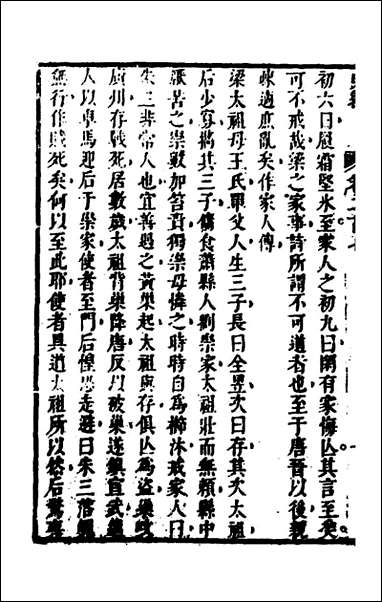 初六曰履霜堅氷至家人之初九曰閑有家悔亡其言至矣
可不戒哉梁之家事詩所謂不可道者也至于唐晉以後親
疎適庶亂矣作家人傳
梁太祖母王氏單父人生三子長曰全昱次曰存其次太祖
后少寡攜其三子傭食蕭縣人劉崇家太祖壯而無賴縣中
厭苦之崇數加笞責獨崇母憐之時時自爲櫛沐戒家人曰
朱三非常人也宜善遇之黃巢起太祖與存俱亡爲盜巢攻
廣州存戰死居數歲太祖背巢降唐反以破巢遂鎮宣武遣
人以車馬迎后于崇家使者至門后惶恐走避曰朱三落魄
無行作賊死矣何以至此耶使者具道太祖所以然后驚喜